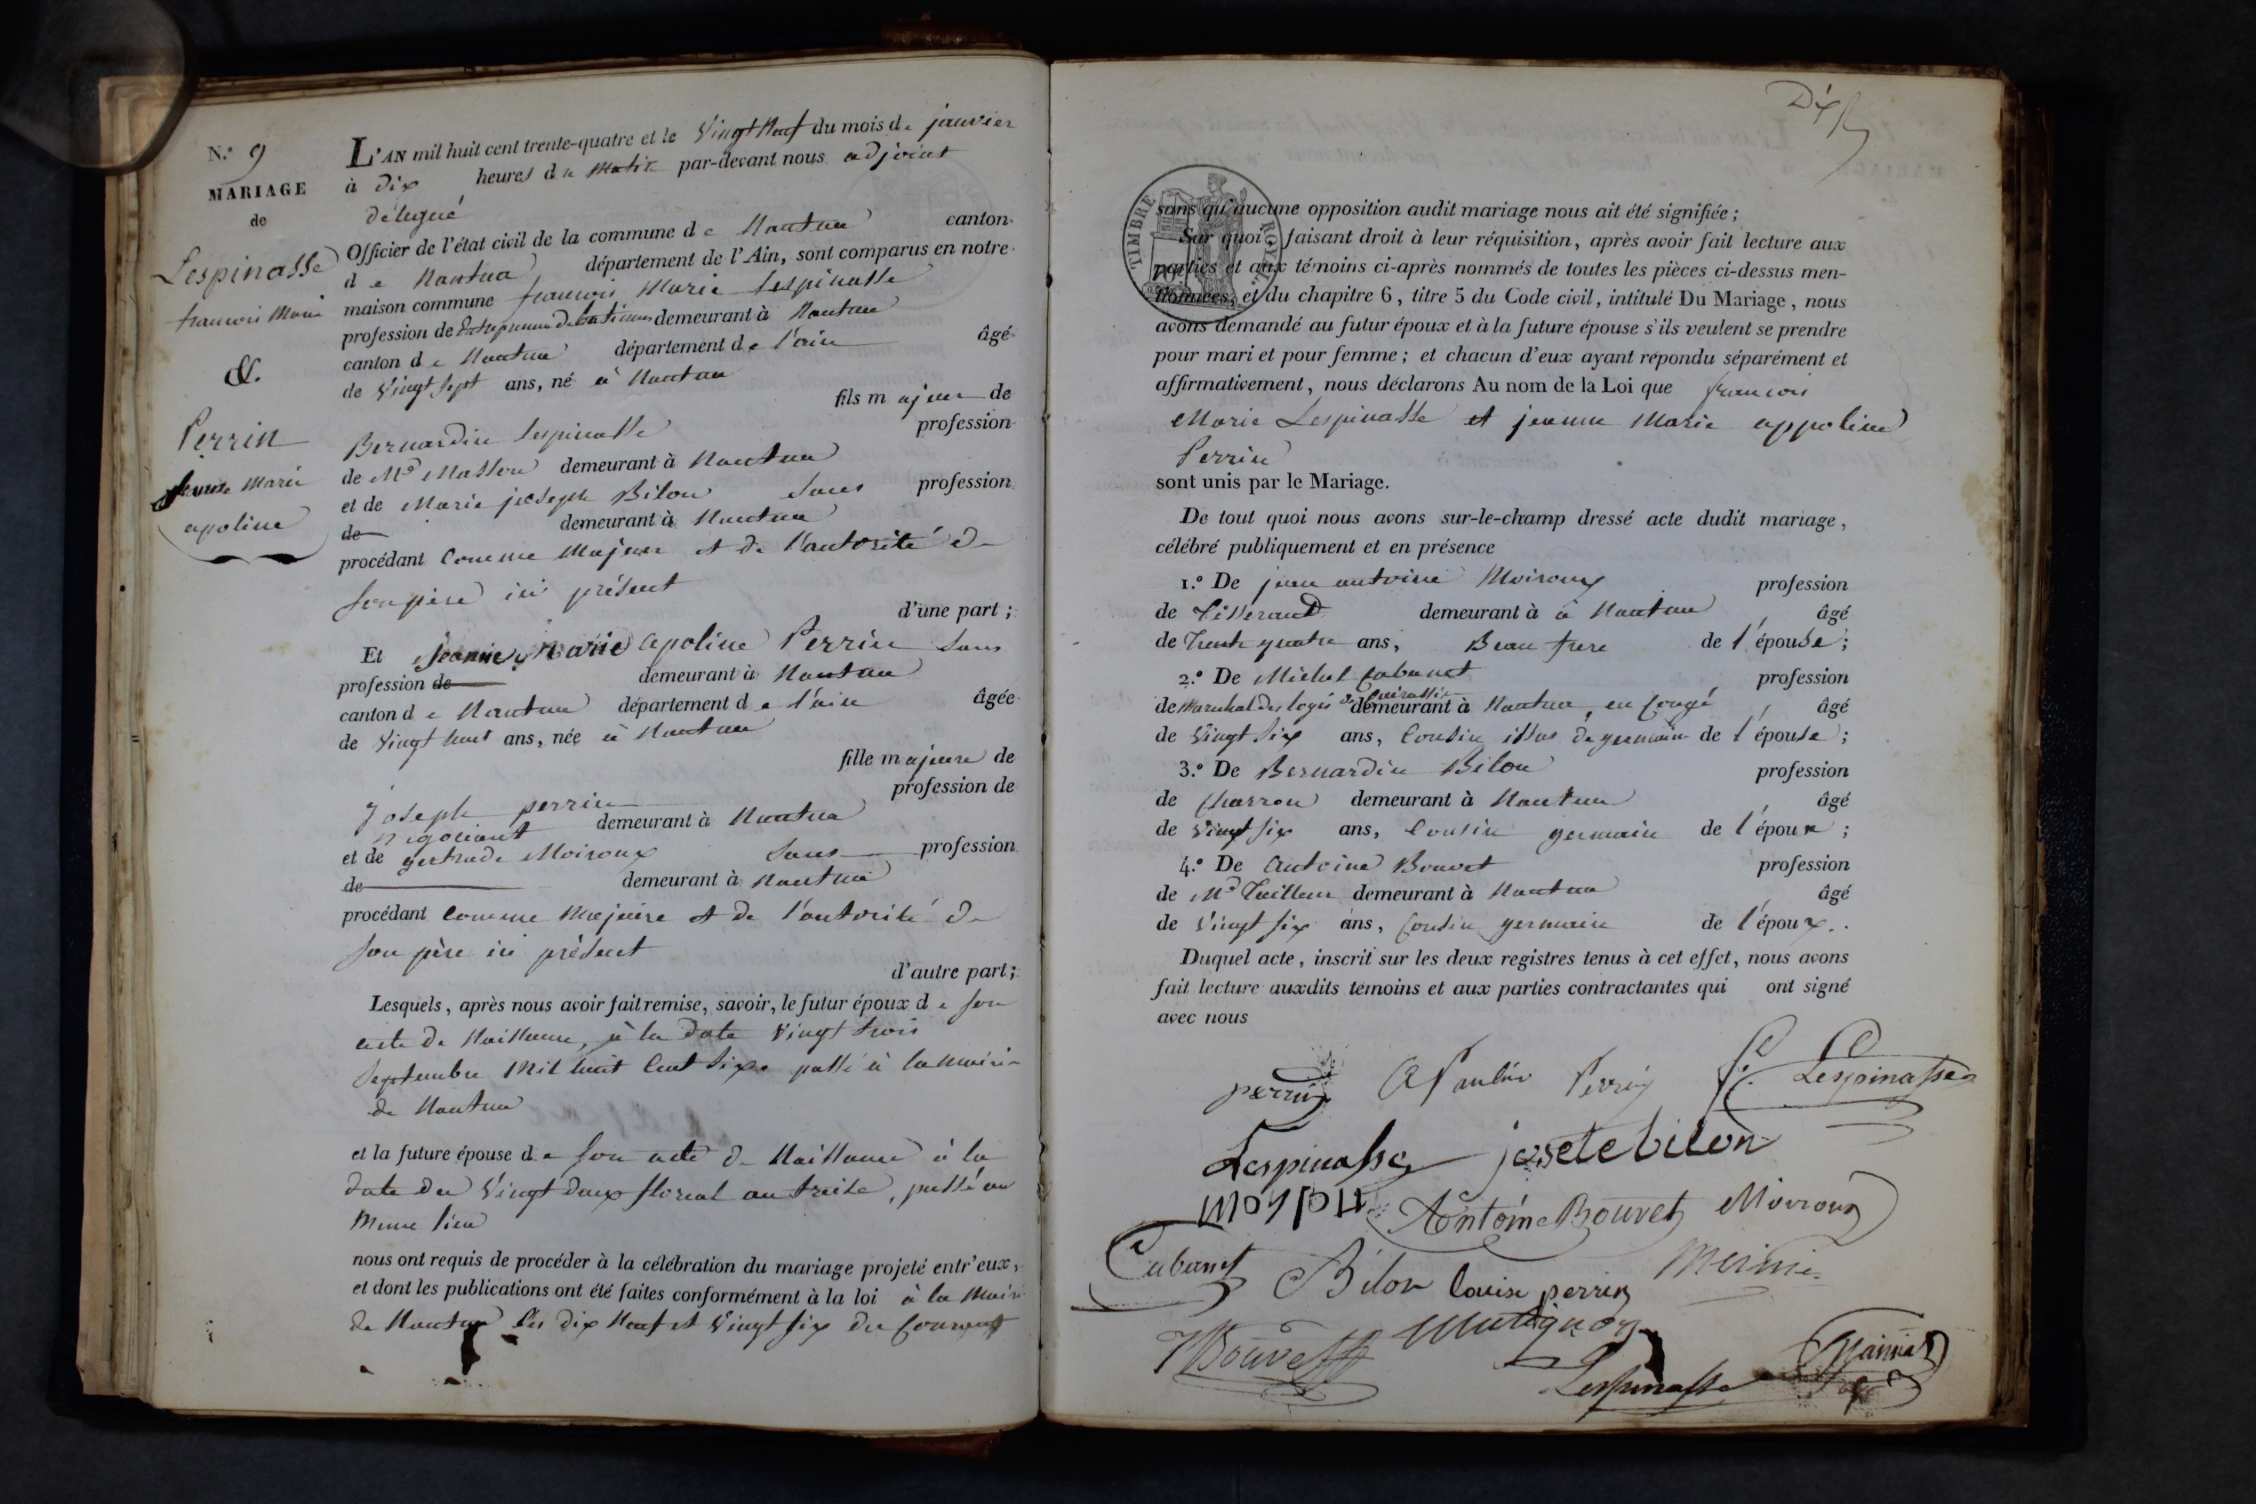 N.º 9
MARIAGE
de
Lespinasse
francois Marie
&.
Perrin
Jeanne Marie
apoline
L'AN mil huit cent trente-quatre et le Vingt Neuf du mois de janvier
à dix heures du Matin par-devant nous adjoint
délégué
Officier de l'état civil de la commune de Nantua canton
de Nantua département de l'Ain, sont comparus en notre
maison commune francois Marie Lespinasse
profession de Entrepreneur de batimens demeurant à Nantua
canton de Nantua département de l'ain âgé
de Vingt Sept ans, né à Nantua
fils majeur de
Bernardin Lespinasse profession
de Md Masson demeurant à Nantua
et de Marie joseph Bilon Sans profession
de demeurant à Nantua
procédant Comme Majeur et de l'autorité de
Son père ici présent
d'une part ;
Et Jeanne Marie apoline Perrin Sans
profession de demeurant à Nantua
canton de Nantua département de l'ain âgée
de Vingt huit ans, née à Nantua
fille majeure de
joseph perrin profession de
négociant demeurant à Nantua
et de gertrude Moiroux Sans profession
de demeurant à Nantua
procédant Comme Majeure et de l'autorité de
Son père ici présent
d'autre part ;
Lesquels, après nous avoir fait remise, savoir, le futur époux de Son
acte de Naissance, à la date Vingt trois
Septembre Mil huit Cent Six, passé à la Mairie
de Nantua
et la future épouse de Son acte de Naissance à la
date du Vingt deux floreal an treize, passé au
Meme lieu
nous ont requis de procéder à la célébration du mariage projeté entr'eux,
et dont les publications ont été faites conformément à la loi à la Mairie
de Nantua les dix Neuf et Vingt Six du Courant
Dix
TIMBRE ROYAL
sans qu'aucune opposition audit mariage nous ait été signifiée ;
Sur quoi, faisant droit à leur réquisition, après avoir fait lecture aux
parties et aux témoins ci-après nommés de toutes les pièces ci-dessus men-
tionnées, et du chapitre 6, titre 5 du Code civil, intitulé Du Mariage, nous
avons demandé au futur époux et à la future épouse s'ils veulent se prendre
pour mari et pour femme ; et chacun d'eux ayant répondu séparément et
affirmativement, nous déclarons Au nom de la Loi que francois
Marie Lespinasse et jeanne Marie appoline
Perrin
sont unis par le Mariage.
De tout quoi nous avons sur-le-champ dressé acte dudit mariage,
célébré publiquement et en présence
1.º De jean antoine Moiroux profession
de Tisserand demeurant à à Nantua, âgé
de Trente quatre ans, Beau frere de l'épouse ;
2.º De Michel Cabanet profession
de Marechal des logis de Cuirassier demeurant à Nantua, en Congé, âgé
de Vingt Six ans, Cousin issus de germain de l'épouse ;
3.º De Bernardin Bilon profession
de Charron demeurant à Nantua, âgé
de Vingt Six ans, Cousin germain de l'époux ;
4.º De Antoine Bouvet profession
de Md Tailleur demeurant à Nantua, âgé
de Vingt Six ans, Cousin germain de l'époux..
Duquel acte, inscrit sur les deux registres tenus à cet effet, nous avons
fait lecture auxdits témoins et aux parties contractantes qui ont signé
avec nous
perrin Perrin Lespinasse
Lespinasse josete bilon
Antoine Bouvet Moiroux
Cabanet Bilon Louise perrin
Bouvet
Lespinasse